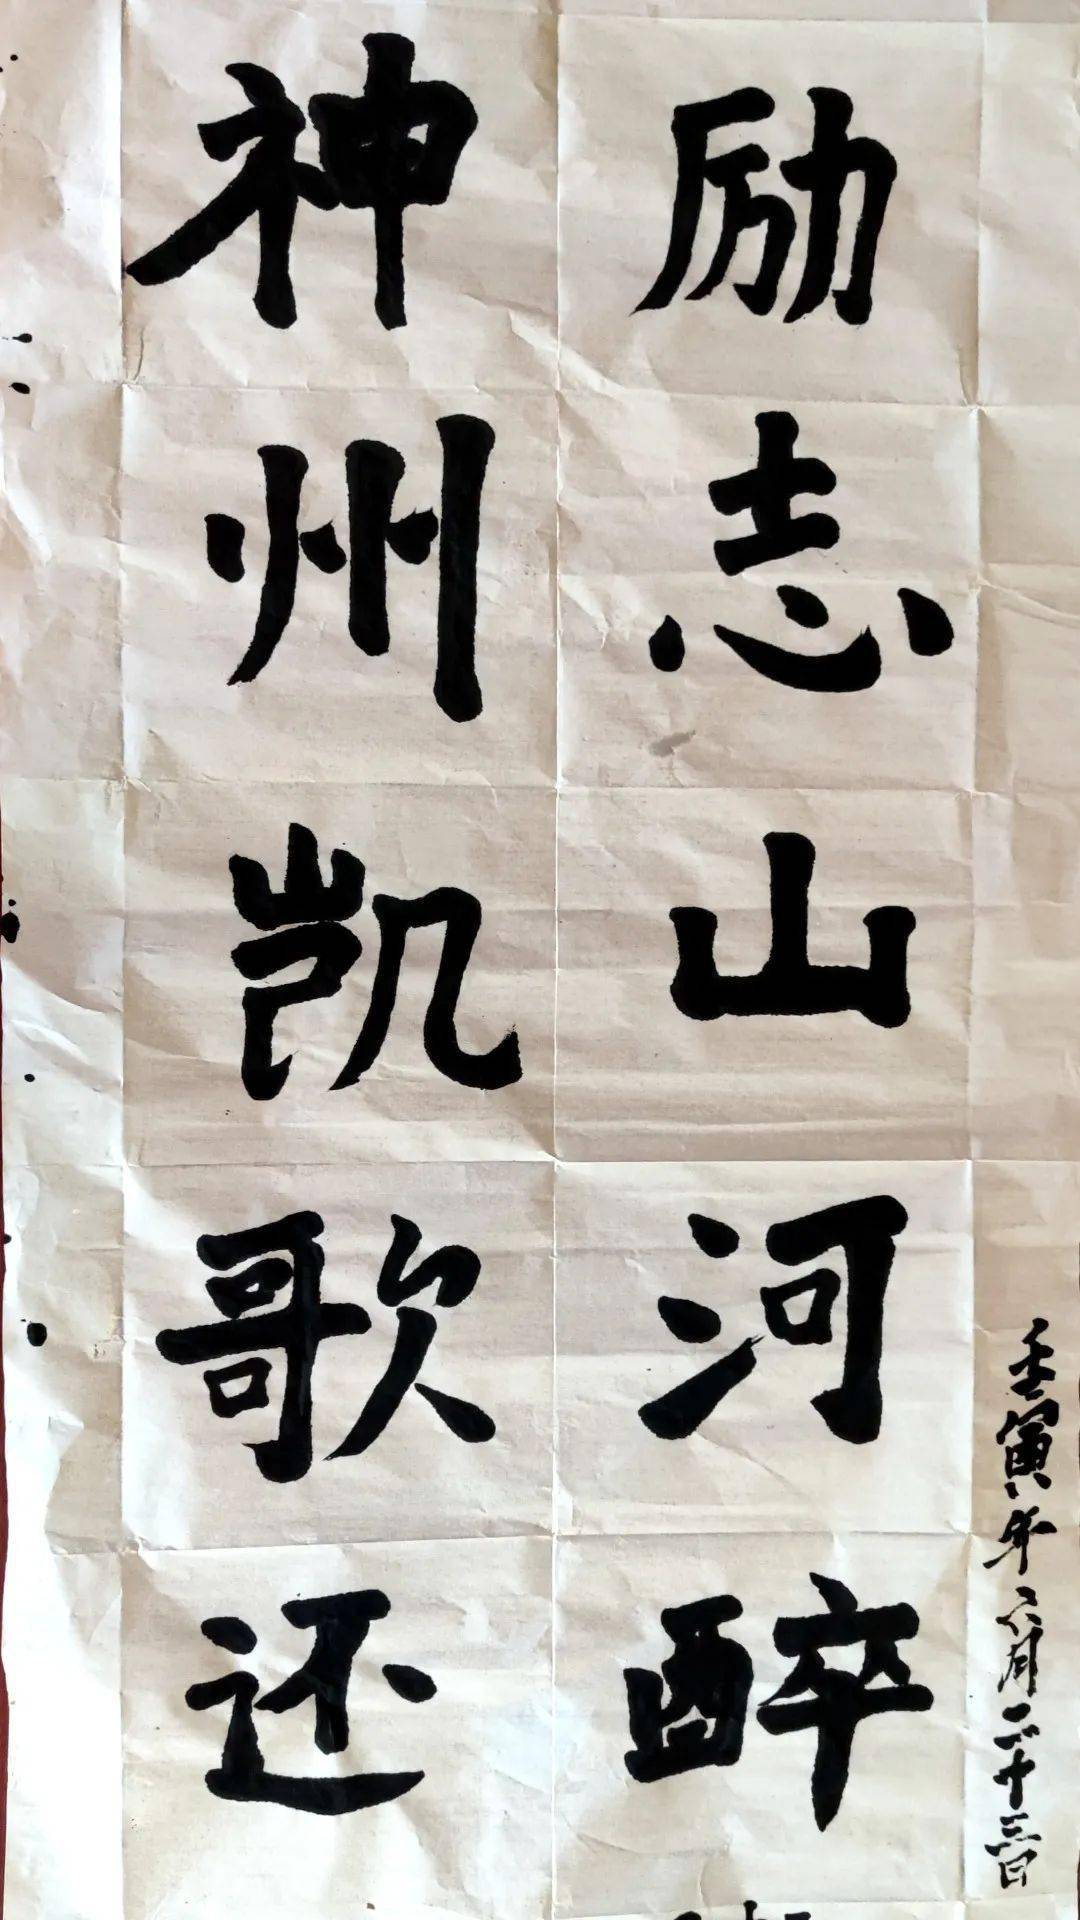 壬寅年六月二十三日
励志山河醉
神州凯歌还